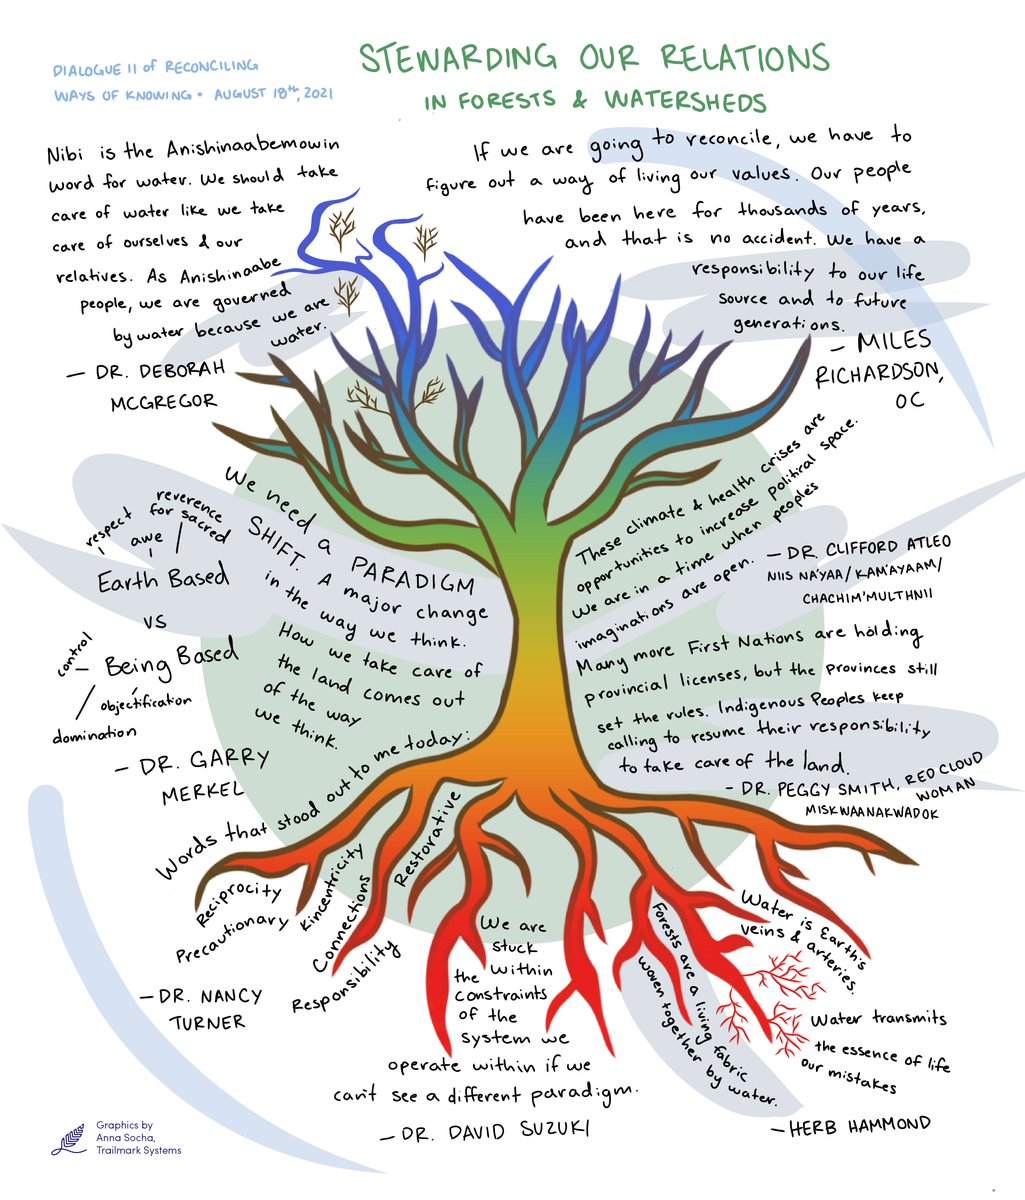 DIALOGUE II of RECONCILING
WAYS OF KNOWING • AUGUST 18th, 2021
STEWARDING OUR RELATIONS
IN FORESTS & WATERSHEDS
Nibi is the Anishinaabemowin
word for water. We should take
care of water like we take
care of ourselves & our
relatives. As Anishinaabe
people, we are governed
by water because we are
water.
— DR. DEBORAH
MCGREGOR
If we are going to reconcile, we have to
figure out a way of living our values. Our people
have been here for thousands of years,
and that is no accident. We have a
responsibility to our life
source and to future
generations.
— MILES
RICHARDSON,
OC
We need a PARADIGM
SHIFT. A major change
in the way we think.
How we take care of
the land comes out
of the way
we think.
respect
awe
reverence
for sacred
Earth Based
VS
Being Based
control
objectification
domination
— DR. GARRY
MERKEL
These climate & health crises are
opportunities to increase political space.
We are in a time when people's
imaginations are open.
— DR. CLIFFORD ATLEO
NIIS NA'YAA/KAM'AYAAM/
CHACHIM'MULTHNII
Many more First Nations are holding
provincial licenses, but the provinces still
set the rules. Indigenous Peoples keep
calling to resume their responsibility
to take care of the land.
— DR. PEGGY SMITH, RED CLOUD
WOMAN
MISKWAANAKWADOK
Words that stood out to me today:
Reciprocity
Precautionary
Kincentricity
Connections
Responsibility
Restorative
— DR. NANCY
TURNER
We are
stuck
within
the
constraints
of the
system we
operate within if we
can't see a different paradigm.
— DR. DAVID SUZUKI
Forests are a living fabric
woven together by water.
Water is Earth's
veins & arteries.
Water transmits
the essence of life
our mistakes
— HERB HAMMOND
Graphics by
Anna Socha,
Trailmark Systems